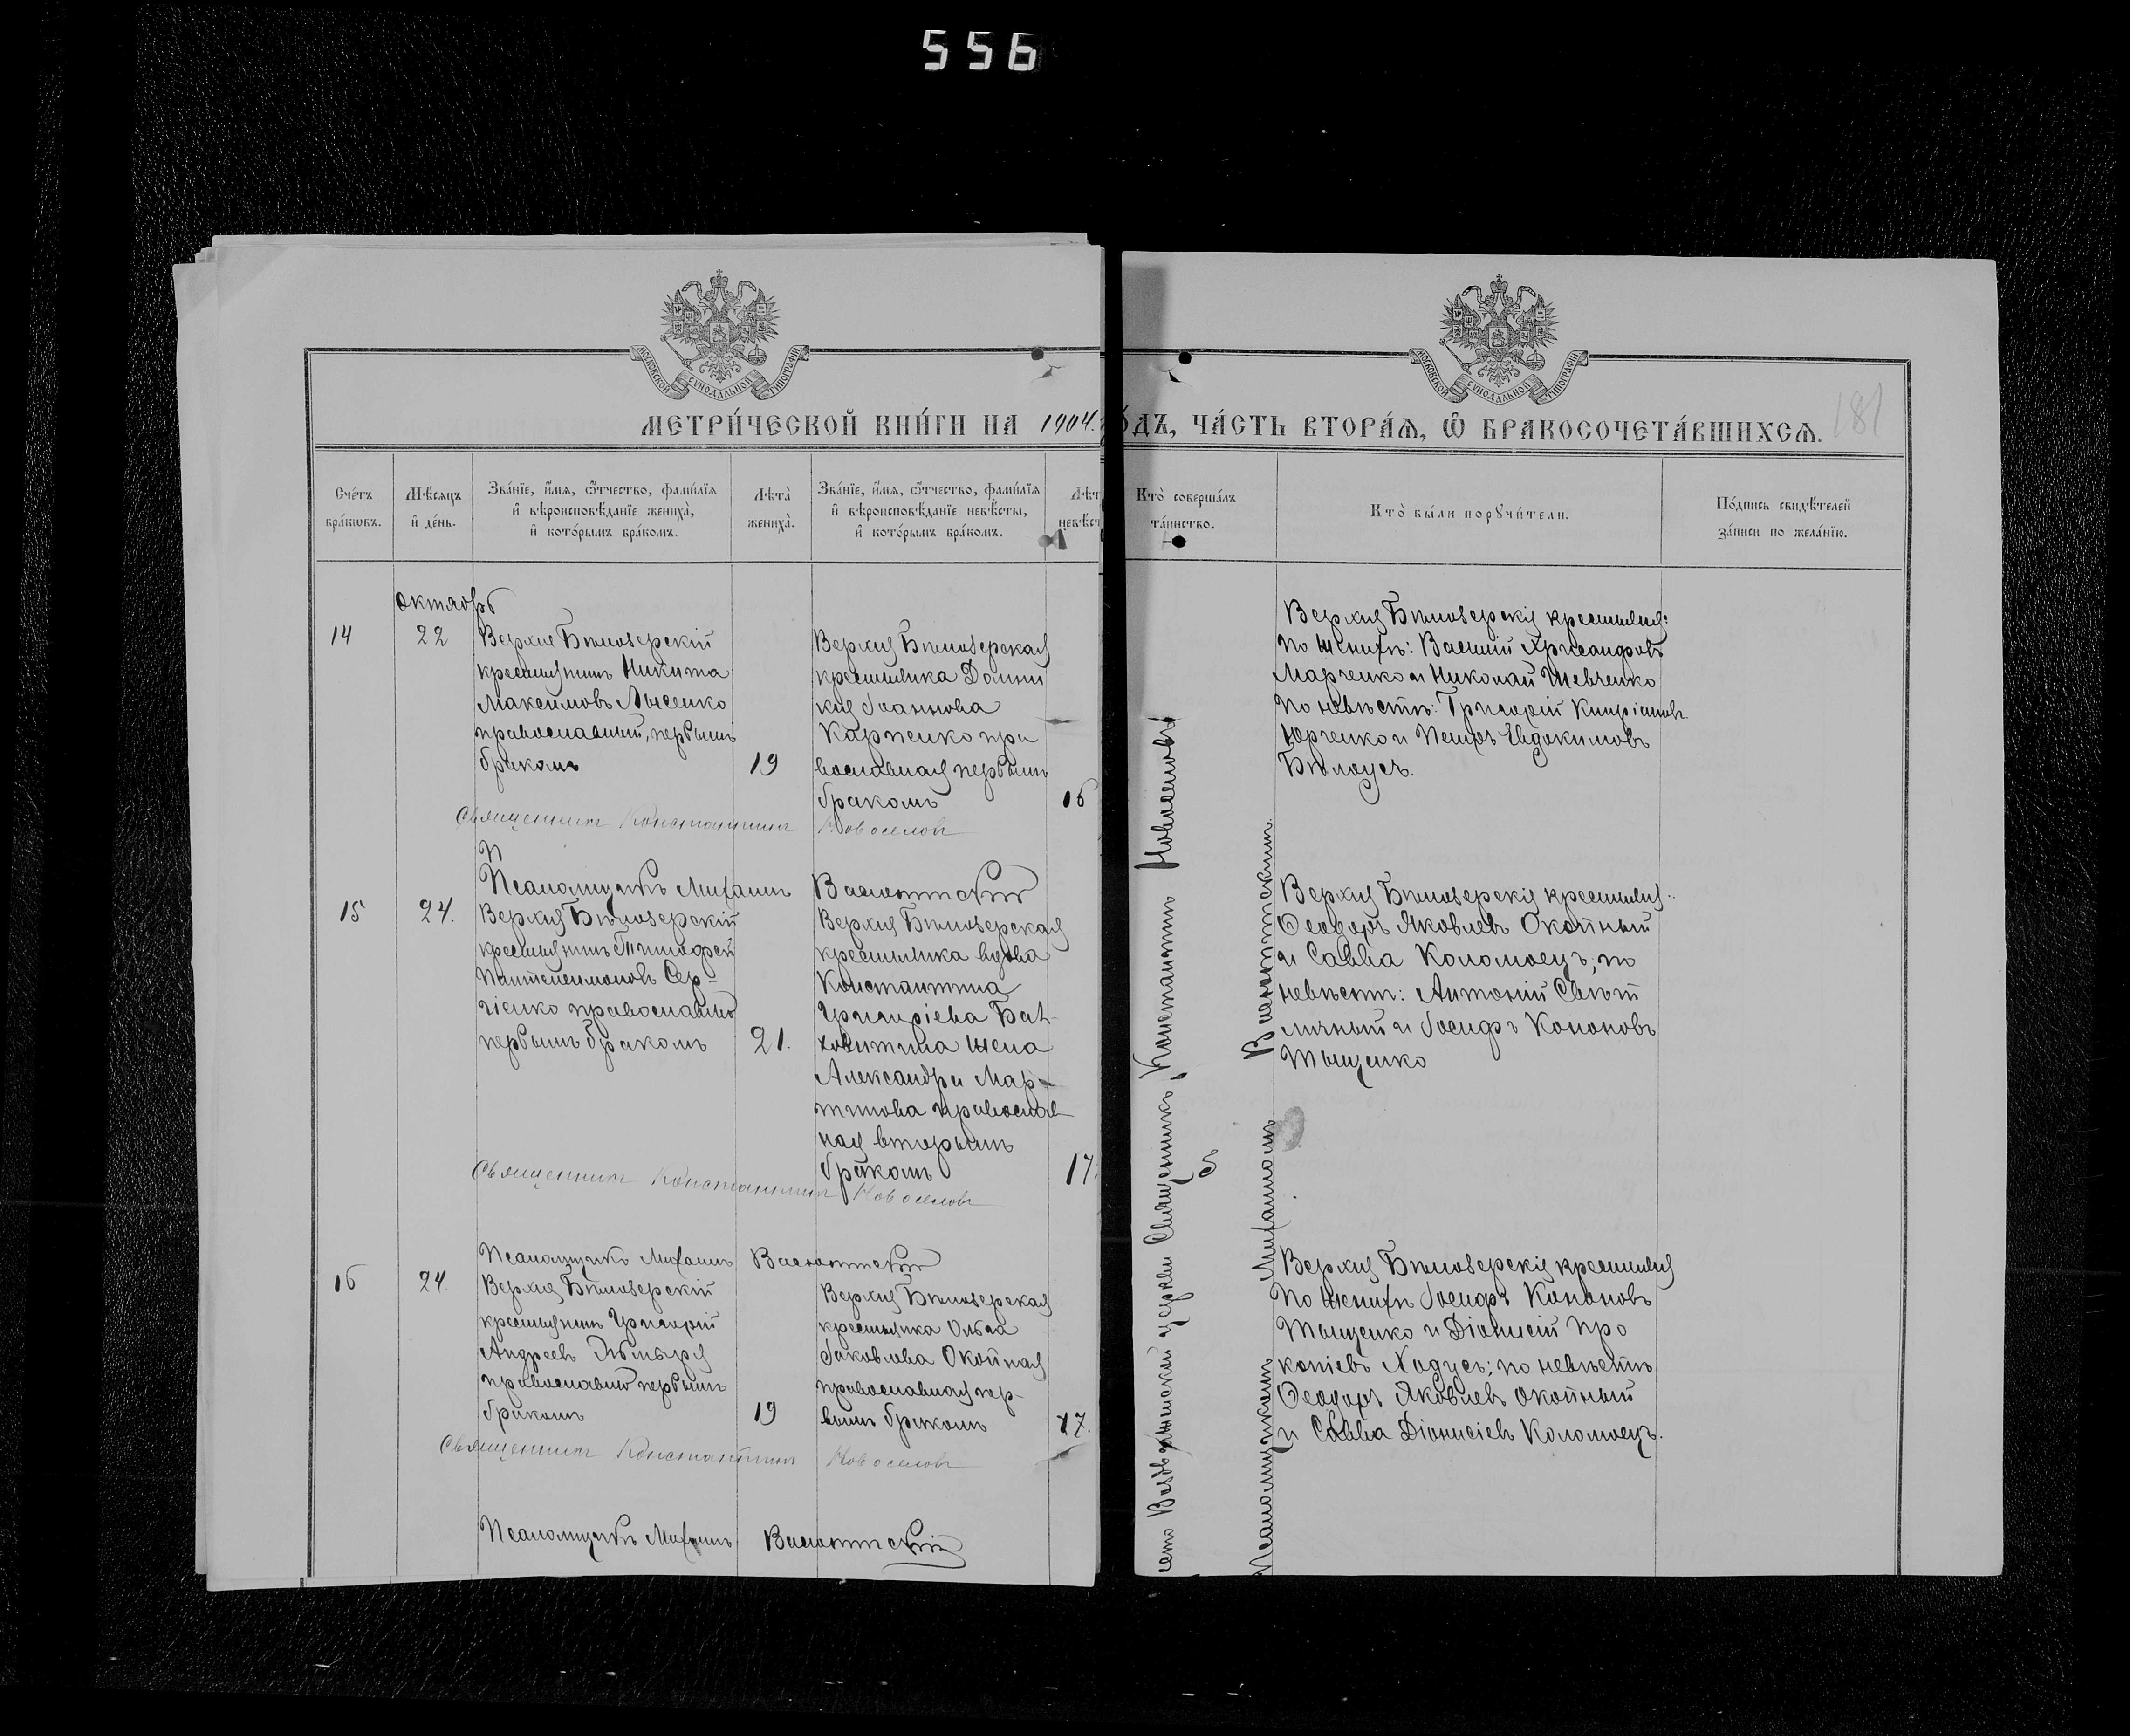 556
МОСКОВСКОЙ СѴНОДАЛЬНОЙ ТИПОГРАФІИ
МОСКОВСКОЙ СѴНОДАЛЬНОЙ ТИПОГРАФІИ
МЕТРИ́ЧЕСКОЙ КНИ́ГИ НА 1904 ГО́ДЪ, ЧА́СТЬ ВТОРА́Ѧ, Ѽ БРАКОСОЧЕТА́ВШИХСѦ.
181
Сче́тъ бра́кѡвъ.
Мѣ́сяцъ и҆ де́нь.
Зва́нїе, и҆́мя, ѻ҆́тчество, фами́лїя и҆ вѣроисповѣ́данїе жениха̀, и҆ кото́рымъ бра́комъ.
Лѣта̀ жениха̀.
Зва́нїе, и҆́мя, ѻ҆́тчество, фами́лїя и҆ вѣроисповѣ́данїе невѣ́сты, и҆ кото́рымъ бра́комъ.
Лѣт невѣст
Кто̀ соверша́лъ та́инство.
Кто̀ бы́ли порꙋчи́тели.
По́дпись свидѣ́телей за́писи по жела́нїю.
Октябрь
14
22
Верхне Бѣлозерскій
крестьянинъ Никита
Максимовъ Лысенко
православный, первымъ
бракомъ
19
Верхне Бѣлозерская
крестьянка Домни
кія Іоаннова
Карпенко пра
вославная первымъ
бракомъ
16
Верхне Бѣлозерскіе крестьяне:
по женихѣ: Василій Хрисанфовъ
Марченко и Николай Шевченко
по невѣстѣ: Григорій Кипріановъ
Юрченко и Петръ Евдокимовъ
Бѣлоусъ.
Священникъ Константинъ Новоселовъ
Псаломщикъ Михаилъ
15
24.
Верхне Бѣлозерскій
крестьянинъ Тимофей
Пантелеимоновъ Сер-
гіенко православный
первымъ бракомъ
21.
Верхне Бѣлозерская
крестьянка вдова
Константина
Григоріева
жена
Александра Мар-
тинова православ
ная вторымъ
бракомъ
17.
Верхне Бѣлозерскіе крестьяне:
Ѳеодоръ Яковлевъ Окойный
и Савва Коломоецъ; по
невѣстѣ: Антоній Свѣт
личный и Іосифъ Кононовъ
Тыщенко
Священникъ Константинъ Новоселовъ
Псаломщикъ Михаилъ
16
24
Верхне Бѣлозерскій
крестьянинъ Григорій
Андреевъ
православный первымъ
бракомъ
19
Верхне Бѣлозерская
крестьянка Ольга
Іаковлева Окойная
православная пер-
вымъ бракомъ
17.
Верхне Бѣлозерскіе крестьяне
по женихѣ Іосифъ Кононовъ
Тыщенко и Діонисій Про
копіевъ Ходусъ; по невѣстѣ
Ѳеодоръ Яковлевъ Окойный
и Савва Діонисіевъ Коломоецъ.
Священникъ Константинъ Новоселовъ
Псаломщикъ Михаилъ
церкви Священникъ Константинъ Новоселовъ
съ
Псаломщикомъ Михаиломъ